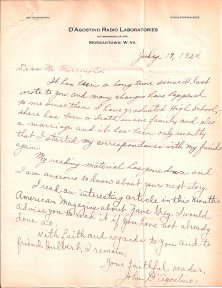 D'AGOSTINO RADIO LABORATORIES
MORGANTOWN, W. VA.
July 19, 1924.
Dear Mr. Burroughs:
It has been a long time since I last
wrote to you and many changes have happened
to me since then. I have graduated High School,
there has been a death in our family and also
a marriage and it has been only recently
that I started my correspondence with my friends
again.
My reading material has
I am anxious to know about your next story.
I read an interesting article in this month's
American Magazine about Zane Grey. I would
advise you to read it if you have not already
done so.
With faith and regards to you and to
friend Hulbert, I remain,
Your faithful reader,
John D'Agostino.